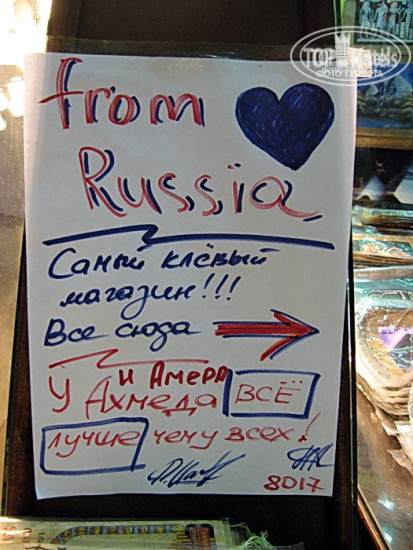 TOP Hotels
ФОТО ТУРИСТА
from
Russia
Самый клёвый
магазин!!!
Все сюда
и Амера
У Ахмеда ВСЁ
лучше чему всех!
8017